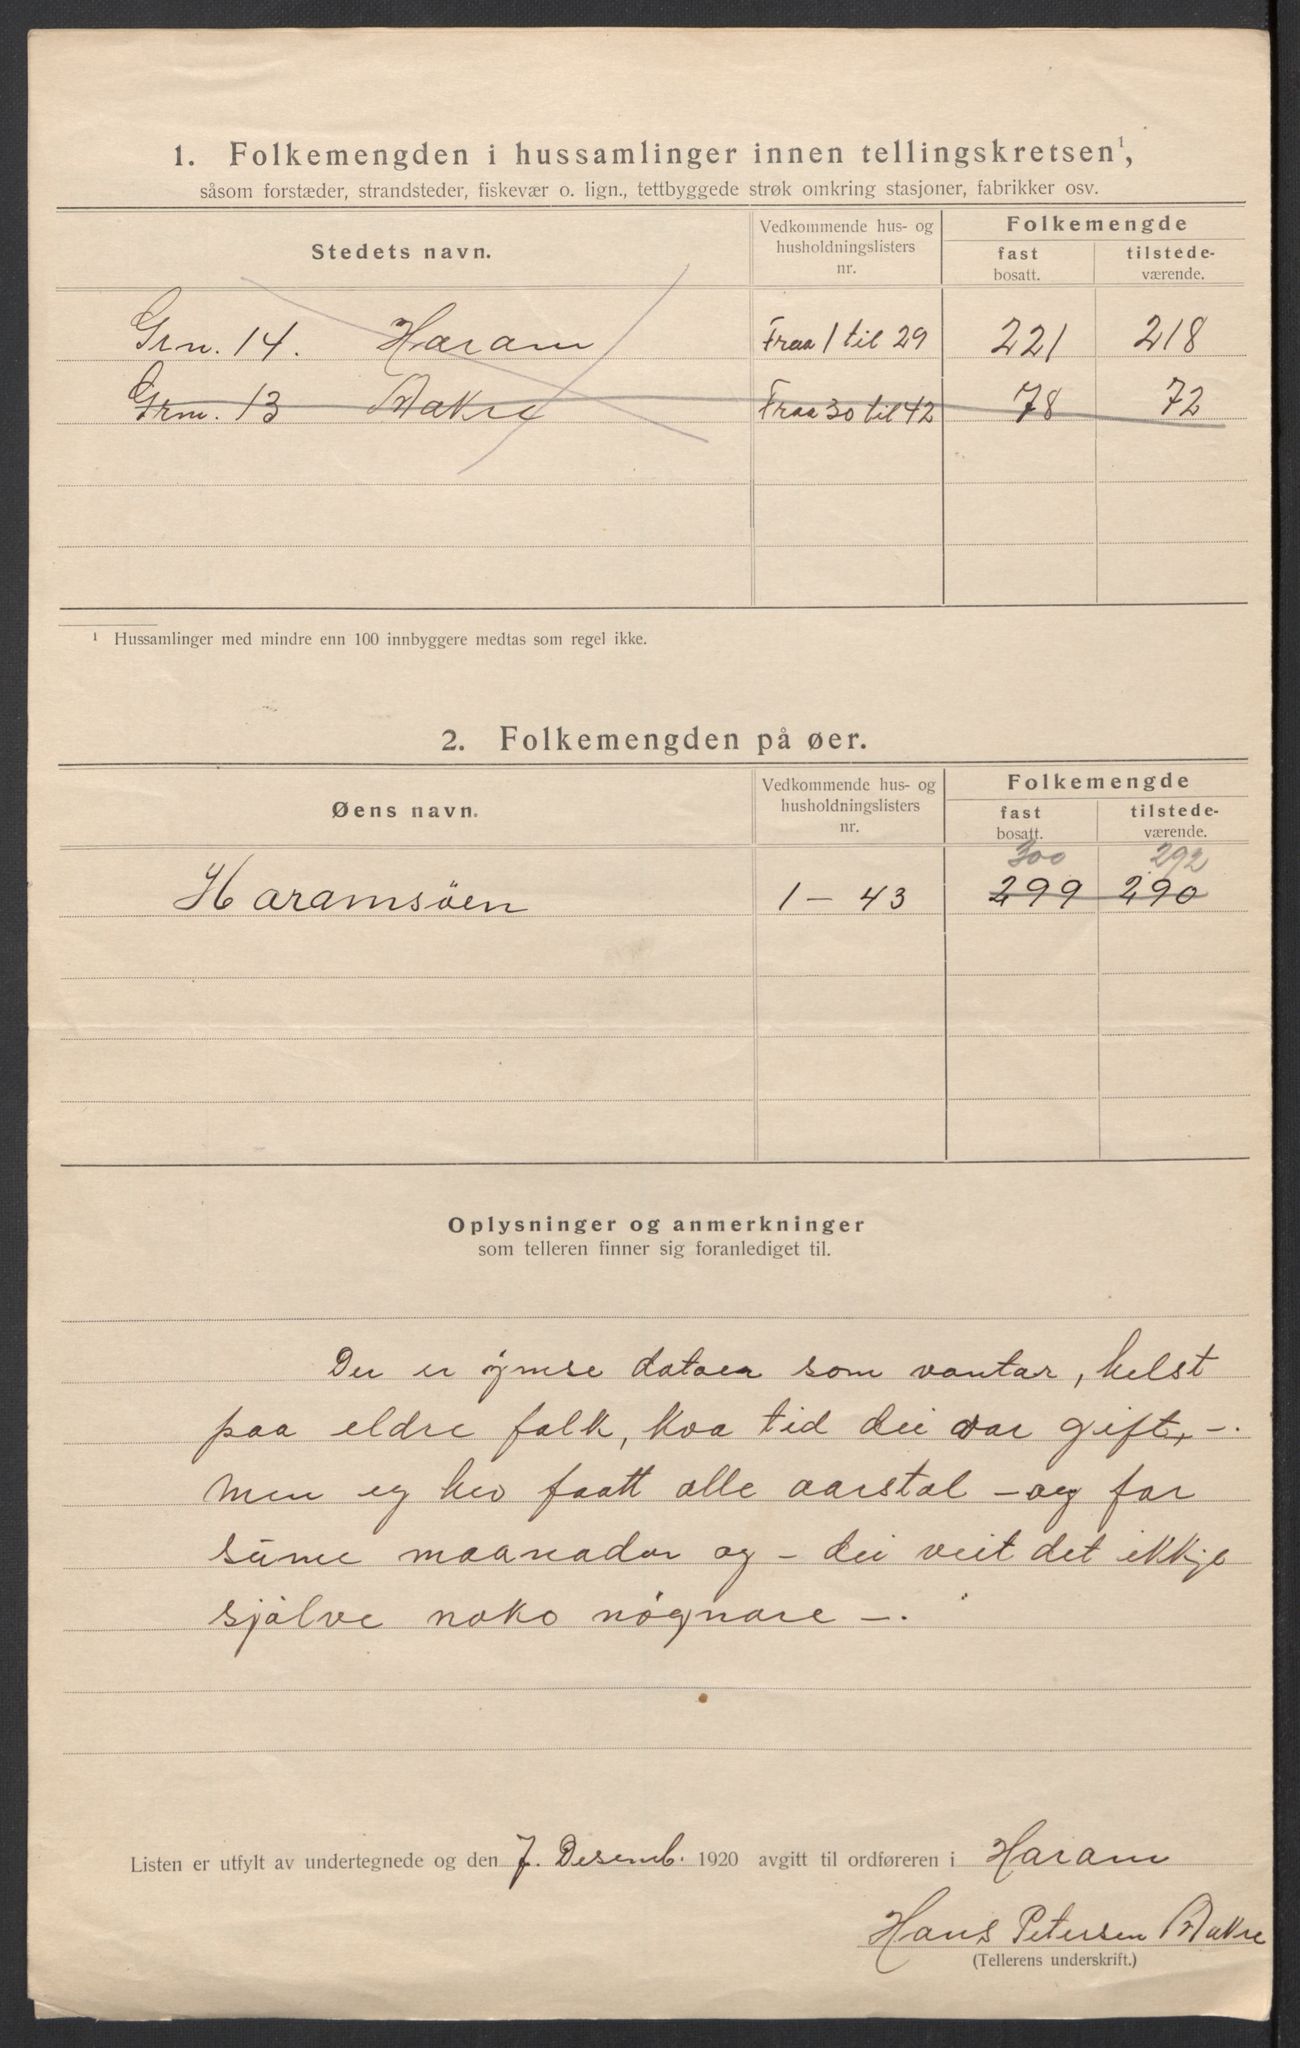 1. Folkemengden i hussamlinger innen tellingskretsen¹,
såsom forstæder, strandsteder, fiskevær o. lign., tettbyggede strøk omkring stasjoner, fabrikker osv.
Stedets navn.
Vedkommende hus- og
husholdningslisters
nr.
Folkemengde
fast
bosatt.
tilstede-
værende.
Grn. 14. Haram Fraa 1 til 29 221 218
Grn. 13 Makre Fraa 30 til 42 78 72
¹ Hussamlinger med mindre enn 100 innbyggere medtas som regel ikke.
2. Folkemengden på øer.
Øens navn.
Vedkommende hus- og
husholdningslisters
nr.
Folkemengde
fast
bosatt.
tilstede-
værende.
300 292
Haramsöen 1 – 43 299 290
Oplysninger og anmerkninger
som telleren finner sig foranlediget til.
Der er ymse datoer som vantar, helst
paa eldre folk, kva tid dei var gifte, –.
Men eg hev faatt alle aarstal – og for
sume maanader og – dei veit det ikkje
sjølve noko nøgnare –.
Listen er utfylt av undertegnede og den 7. Desemb. 1920 avgitt til ordføreren i Haram
Hans Petersen Makre
(Tellerens underskrift.)